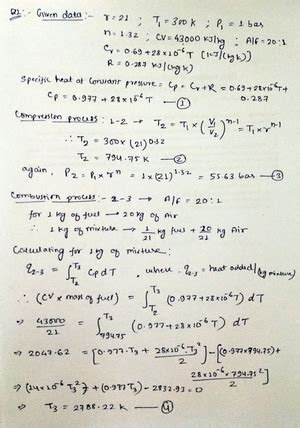 Q1:- Given data:- r = 21 ; T₁ = 300 K ; P₁ = 1 bar
n = 1.32 ; CV = 43000 KJ/kg ; A/f = 20:1
Cv = 0.69 + 28×10⁻⁶ T [kJ/(kg k)]
R = 0.287 kJ/(kg k)
Specific heat at Constant pressure = Cp = Cv + R = 0.69 + 28×10⁻⁶ T + 0.287
Cp = 0.977 + 28×10⁻⁶ T —①
Compression process:- 1-2 → T₂ = T₁ × (V₁/V₂)ⁿ⁻¹ = T₁ × rⁿ⁻¹
∴ T₂ = 300 × (21)^0.32
T₂ = 794.75 K —②
again, P₂ = P₁ × rⁿ = 1 × (21)^1.32 = 55.63 bar —③
Combustion process:- 2-3 → A/f = 20:1
for 1 kg of fuel → 20 kg of Air
∴ 1 kg of mixture → 1/21 kg fuel + 20/21 kg Air
Calculating for 1 kg of mixture:
q₂₋₃ = ∫_{T₂}^{T₃} Cp dT , where, q₂₋₃ = heat added/(kg mixture)
∴ (CV × mass of fuel) = ∫_{T₂}^{T₃} (0.977 + 28×10⁻⁶ T) dT
⇒ 43000/21 = ∫_{794.75}^{T₃} (0.977 + 28×10⁻⁶ T) dT
⇒ 2047.62 = [0.977·T₃ + 28×10⁻⁶ T₃²/2] - [(0.977×794.75) + 28×10⁻⁶ × 794.75²/2]
⇒ (14×10⁻⁶ T₃²) + (0.977 T₃) - 2832.93 = 0
⇒ T₃ = 2788.22 K —④